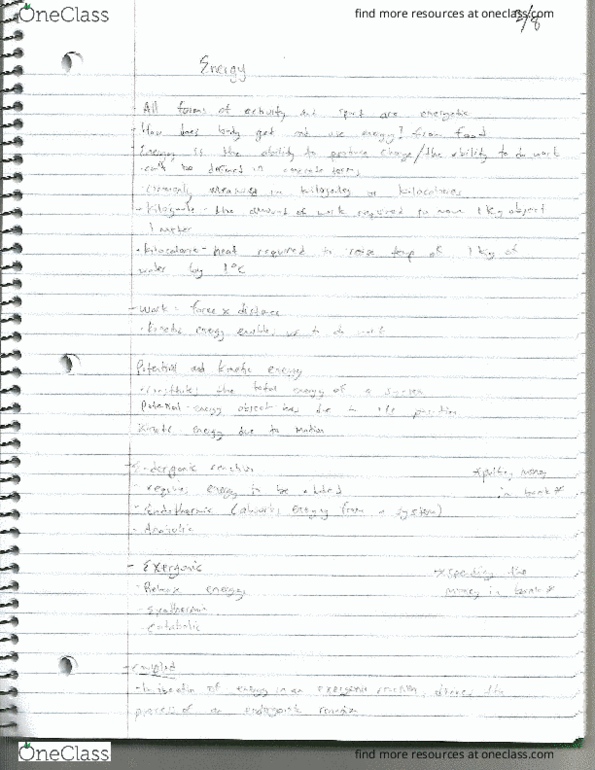 OneClass
find more resources at oneclass.com
3/8
Energy
- All forms of activity and sport are energetic
- How does body get and use energy? from food
Energy is the ability to produce change/the ability to do work
- can't be defined in concrete terms
- commonly measured in kilojoules or kilocalories
- Kilojoule - the amount of work required to move 1 Kg object
1 meter
- Kilocalorie - heat required to raise temp of 1 kg of
water by 1°C
- Work = force x distance
- Kinetic energy enables us to do work
Potential and Kinetic energy
- constitutes the total energy of a system
Potential - energy object has due to its position
Kinetic energy due to motion
reaction
*putting money
in bank*
- requires energy to be added
- Endothermic (absorbs energy from a system)
- Anabolic
- Exergonic
*spending the
money in bank*
- Release energy
- exothermic
- catabolic
- coupled
of energy in an exergonic reaction, drives the
process of an endergonic reaction
OneClass
find more resources at oneclass.com